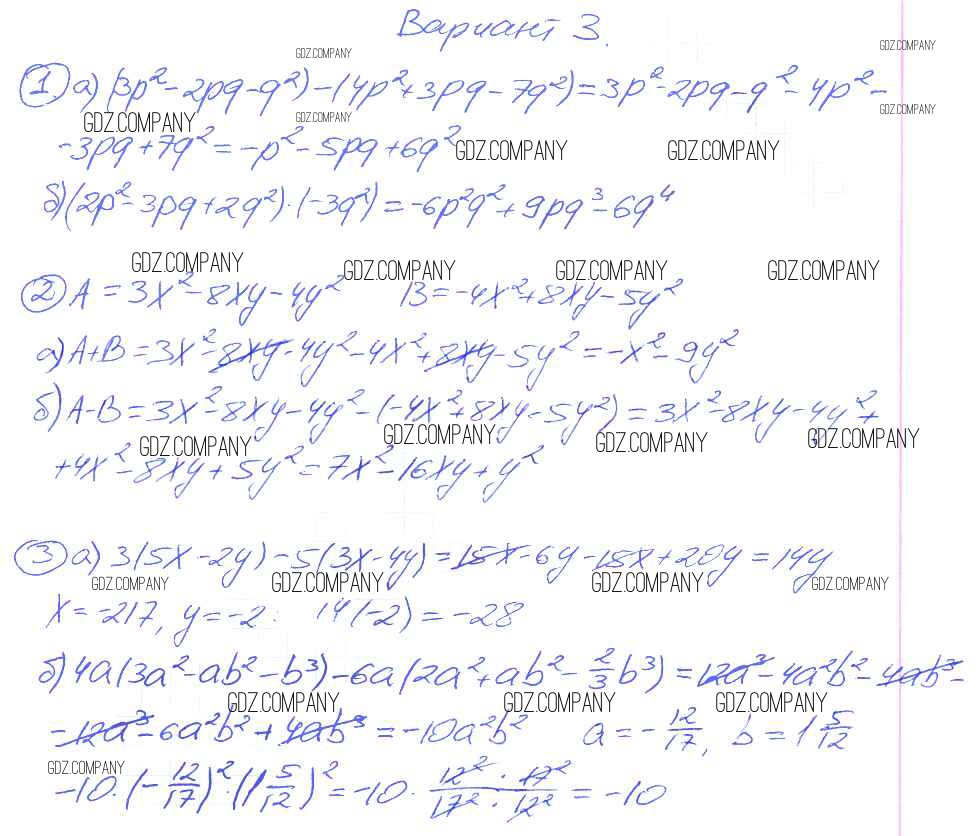 Вариант 3.
GDZ.COMPANY GDZ.COMPANY
① а) (3p² - 2pq - q²) - (4p² + 3pq - 7q²) = 3p² - 2pq - q² - 4p² -
GDZ.COMPANY GDZ.COMPANY GDZ.COMPANY
- 3pq + 7q² = -p² - 5pq + 6q²
GDZ.COMPANY GDZ.COMPANY
б) (2p² - 3pq + 2q²) · (-3q²) = -6p²q² + 9pq³ - 6q⁴
GDZ.COMPANY GDZ.COMPANY GDZ.COMPANY GDZ.COMPANY
② A = 3x² - 8xy - 4y² B = -4x² + 8xy - 5y²
а) A+B = 3x² - 8xy - 4y² - 4x² + 8xy - 5y² = -x² - 9y²
б) A-B = 3x² - 8xy - 4y² - (-4x² + 8xy - 5y²) = 3x² - 8xy - 4y² +
GDZ.COMPANY GDZ.COMPANY GDZ.COMPANY GDZ.COMPANY
+ 4x² - 8xy + 5y² = 7x² - 16xy + y²
③ а) 3(5x - 2y) - 5(3x - 4y) = 15x - 6y - 15x + 20y = 14y
GDZ.COMPANY GDZ.COMPANY GDZ.COMPANY GDZ.COMPANY
x = -217, y = -2: 14(-2) = -28
б) 4a(3a² - ab² - b³) - 6a(2a² + ab² - 2/3 b³) = 12a³ - 4a²b² - 4ab³ -
GDZ.COMPANY GDZ.COMPANY GDZ.COMPANY
- 12a³ - 6a²b² + 4ab³ = -10a²b² a = -12/17, b = 1 5/12
GDZ.COMPANY
-10 · (-12/17)² · (1 5/12)² = -10 · 12² · 17² / 17² · 12² = -10